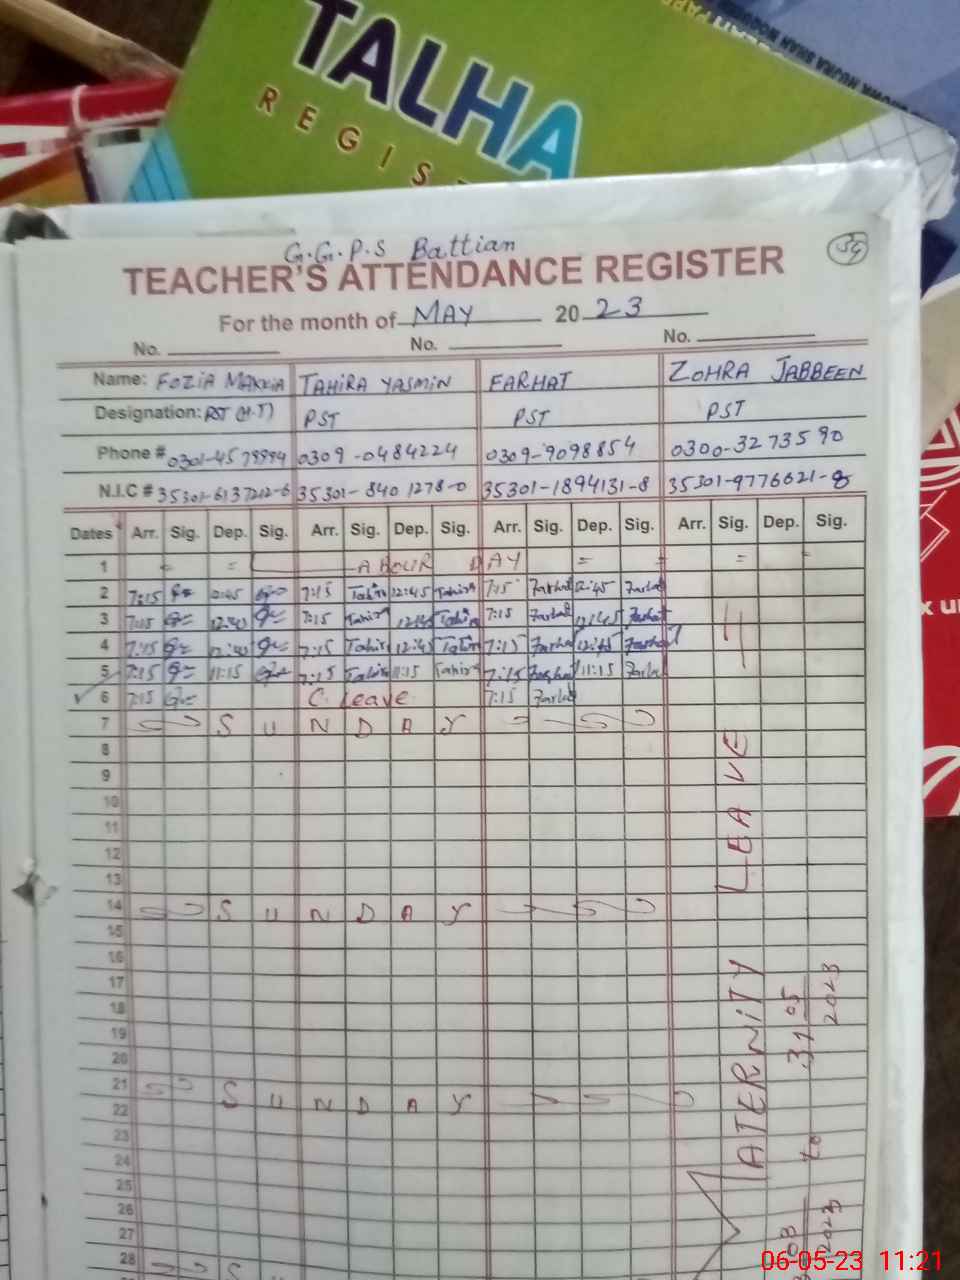 TALHA
REGIS
G.G.P.S Battian
54
TEACHER'S ATTENDANCE REGISTER
For the month of MAY 2023
No. No. No.
Name: FOZIA MAKKIA TAHIRA YASMIN FARHAT ZOHRA JABBEEN
Designation: PST (H.T) PST PST PST
Phone # 0309-0484224 0309-9098854 0300-3273590
N.I.C # 35301-6137212-6 35301-8401278-0 35301-1894131-8 35301-9776621-8
Dates Arr. Sig. Dep. Sig. Arr. Sig. Dep. Sig. Arr. Sig. Dep. Sig. Arr. Sig. Dep. Sig.
1 LABOUR DAY
2 7:15 12:45 7:15 Tahira 12:45 Tahira 7:15 Farhat 12:45 Farhat
3 7:15 12:45 7:15 Tahira 12:45 Tahira 7:15 Farhat 12:45 Farhat
4 7:15 12:45 7:15 Tahira 12:45 Tahira 7:15 Farhat 12:45 Farhat
5 7:15 11:15 7:15 Tahira 11:15 Tahira 7:15 Farhat 11:15 Farhat
6 7:15 C. Leave 7:15 Farhat
7 SUNDAY
8
9
10
11
12
13
14 SUNDAY
15
16
17
18
19
20
21 SUNDAY
22
23
24
25
26
27
28 S U
MATERNITY LEAVE
03 2023 to 31 05 2023
06-05-23 11:21